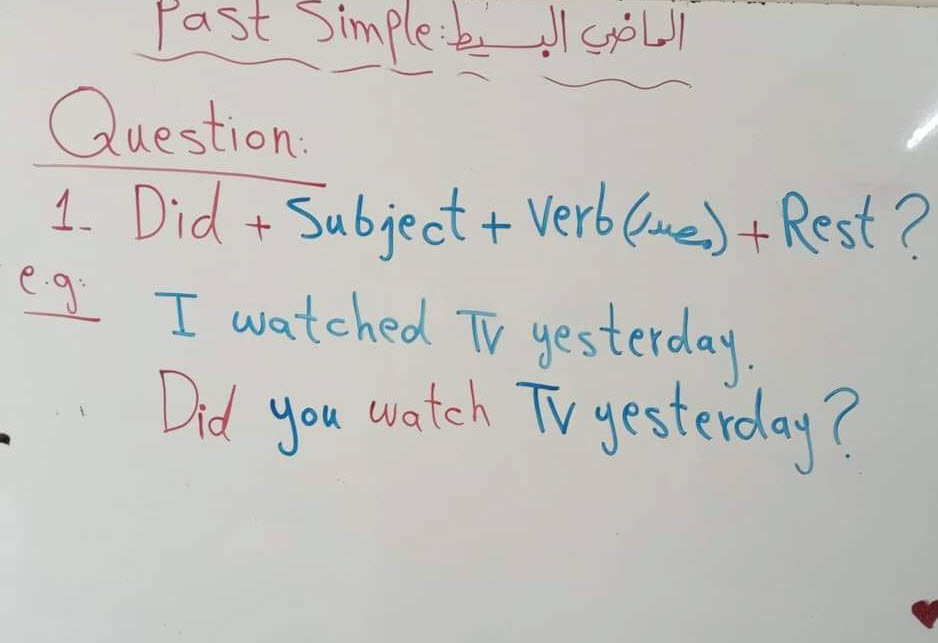 Past Simple: الماضي البسيط
Question:
1- Did + Subject + Verb (مصدر) + Rest ?
e.g:
I watched TV yesterday.
Did you watch TV yesterday?